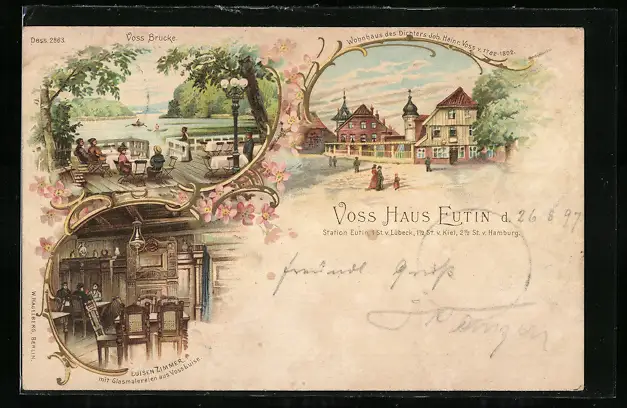 Dess. 2863.
Voss Brücke.
Wohnhaus des Dichters Joh. Heinr. Voss v. 1782-1802.
Voss Haus Eutin d. 26 8 97
Station Eutin, 1 St. v. Lübeck, 1½ St. v. Kiel, 2½ St. v. Hamburg.
freundl Gruß
Luisen Zimmer
mit Glasmalereien aus Voss Luise
W. Hagelberg, Berlin.